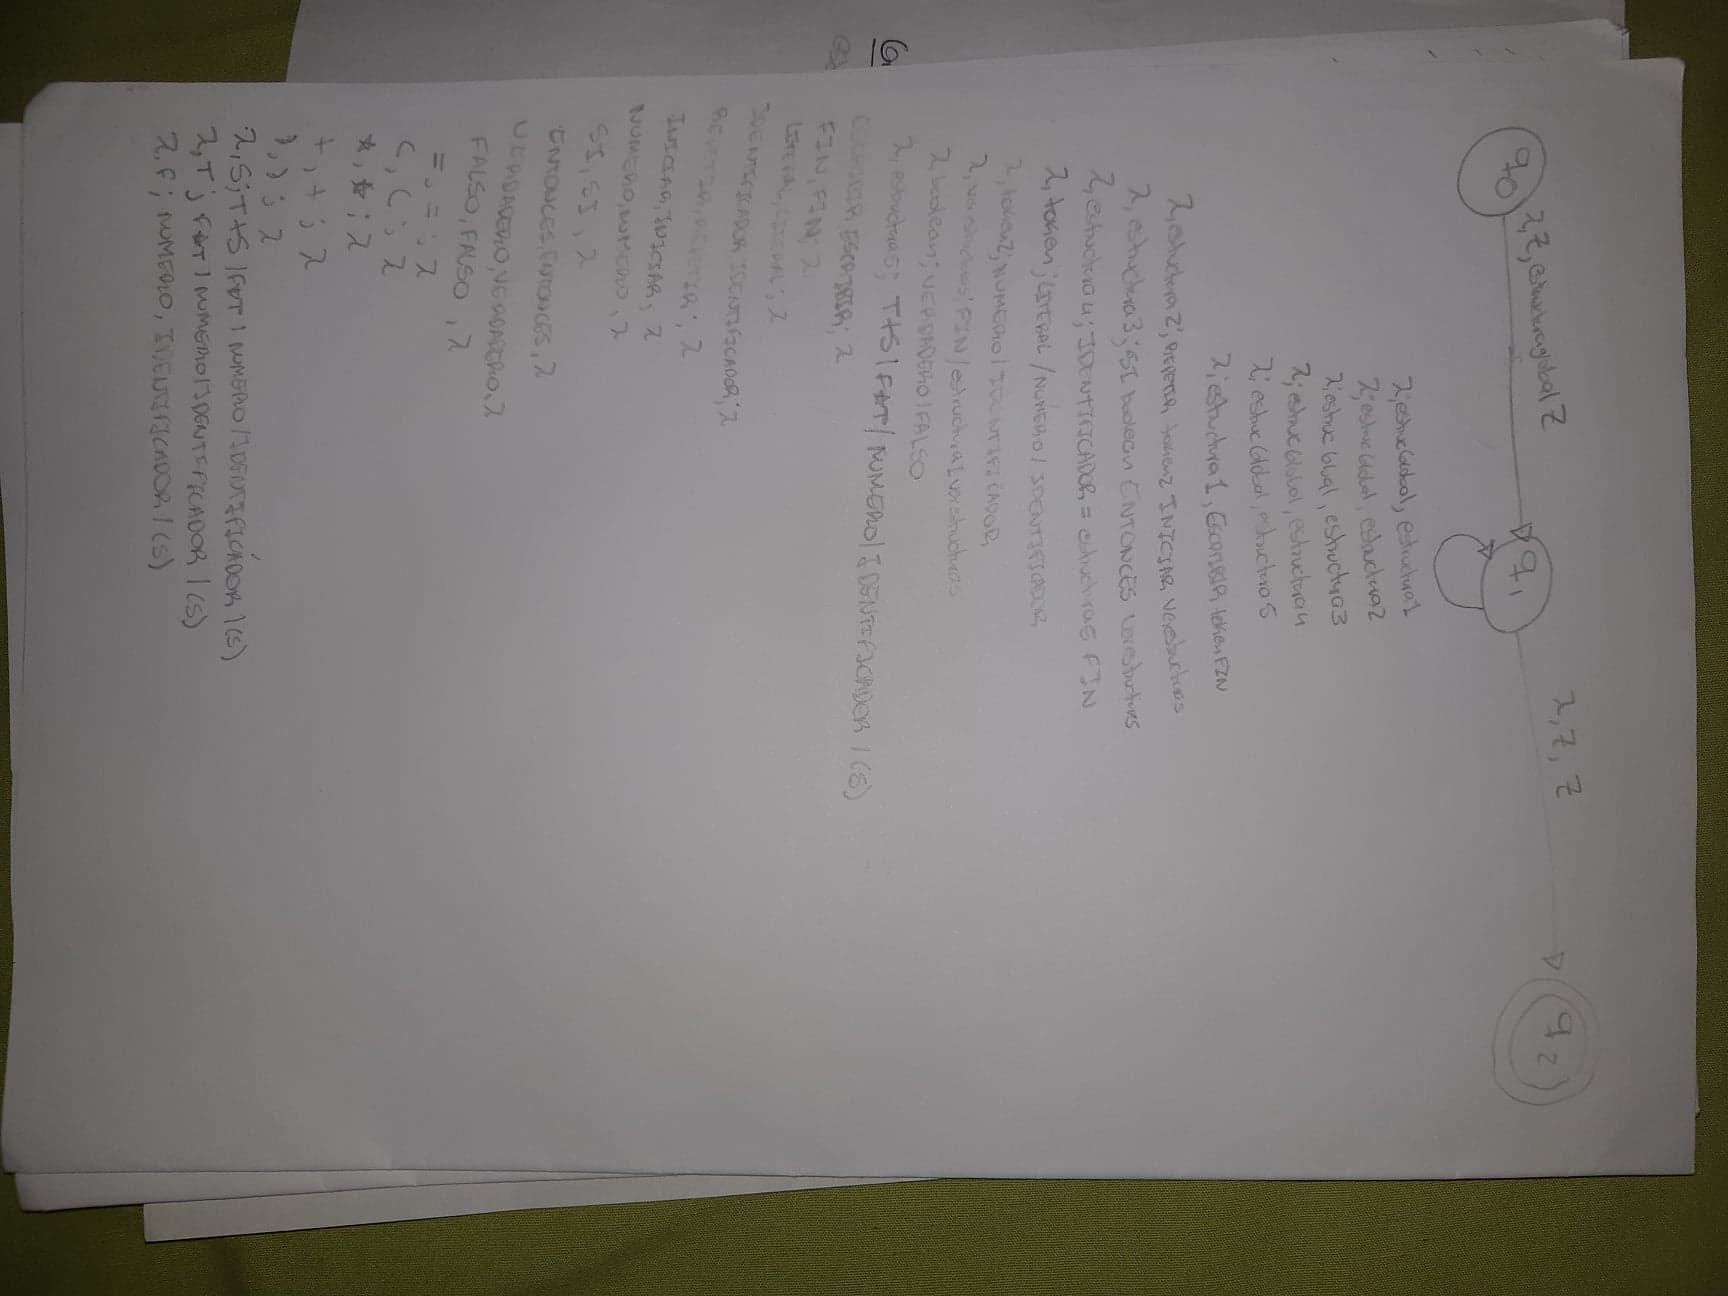 q0
λ, Z, estructuraglobal Z
q1
λ, Z, Z
q2
λ; estrucGlobal, estructura1
λ; estrucGlobal, estructura2
λ; estrucGlobal, estructura3
λ; estrucGlobal, estructura4
λ; estrucGlobal, estructura5
λ; estructura1, ESCRIBIR token FIN
λ, estructura2; REPETIR token2 INICIAR verestructuras
λ, estructura3; SI boolean ENTONCES verestructuras
λ, estructura4; IDENTIFICADOR = estructura5 FIN
λ, token; LITERAL / NUMERO / IDENTIFICADOR
λ, token2; NUMERO / IDENTIFICADOR
λ, FIN / estructura1 verestructuras
λ, boolean; VERDADERO / FALSO
λ, estructura5; T+S | F*T | NUMERO | IDENTIFICADOR | (S)
ESCRIBIR, ESCRIBIR; λ
FIN, FIN; λ
LITERAL, LITERAL; λ
IDENTIFICADOR, IDENTIFICADOR; λ
REPETIR, REPETIR; λ
INICIAR, INICIAR, λ
NUMERO, NUMERO, λ
SI, SI, λ
ENTONCES, ENTONCES, λ
VERDADERO, VERDADERO, λ
FALSO, FALSO, λ
=, =; λ
(, (; λ
*, *; λ
+, +; λ
), ); λ
λ, S; T+S | F*T | NUMERO | IDENTIFICADOR | (S)
λ, T; F*T | NUMERO | IDENTIFICADOR | (S)
λ, F; NUMERO, IDENTIFICADOR | (S)